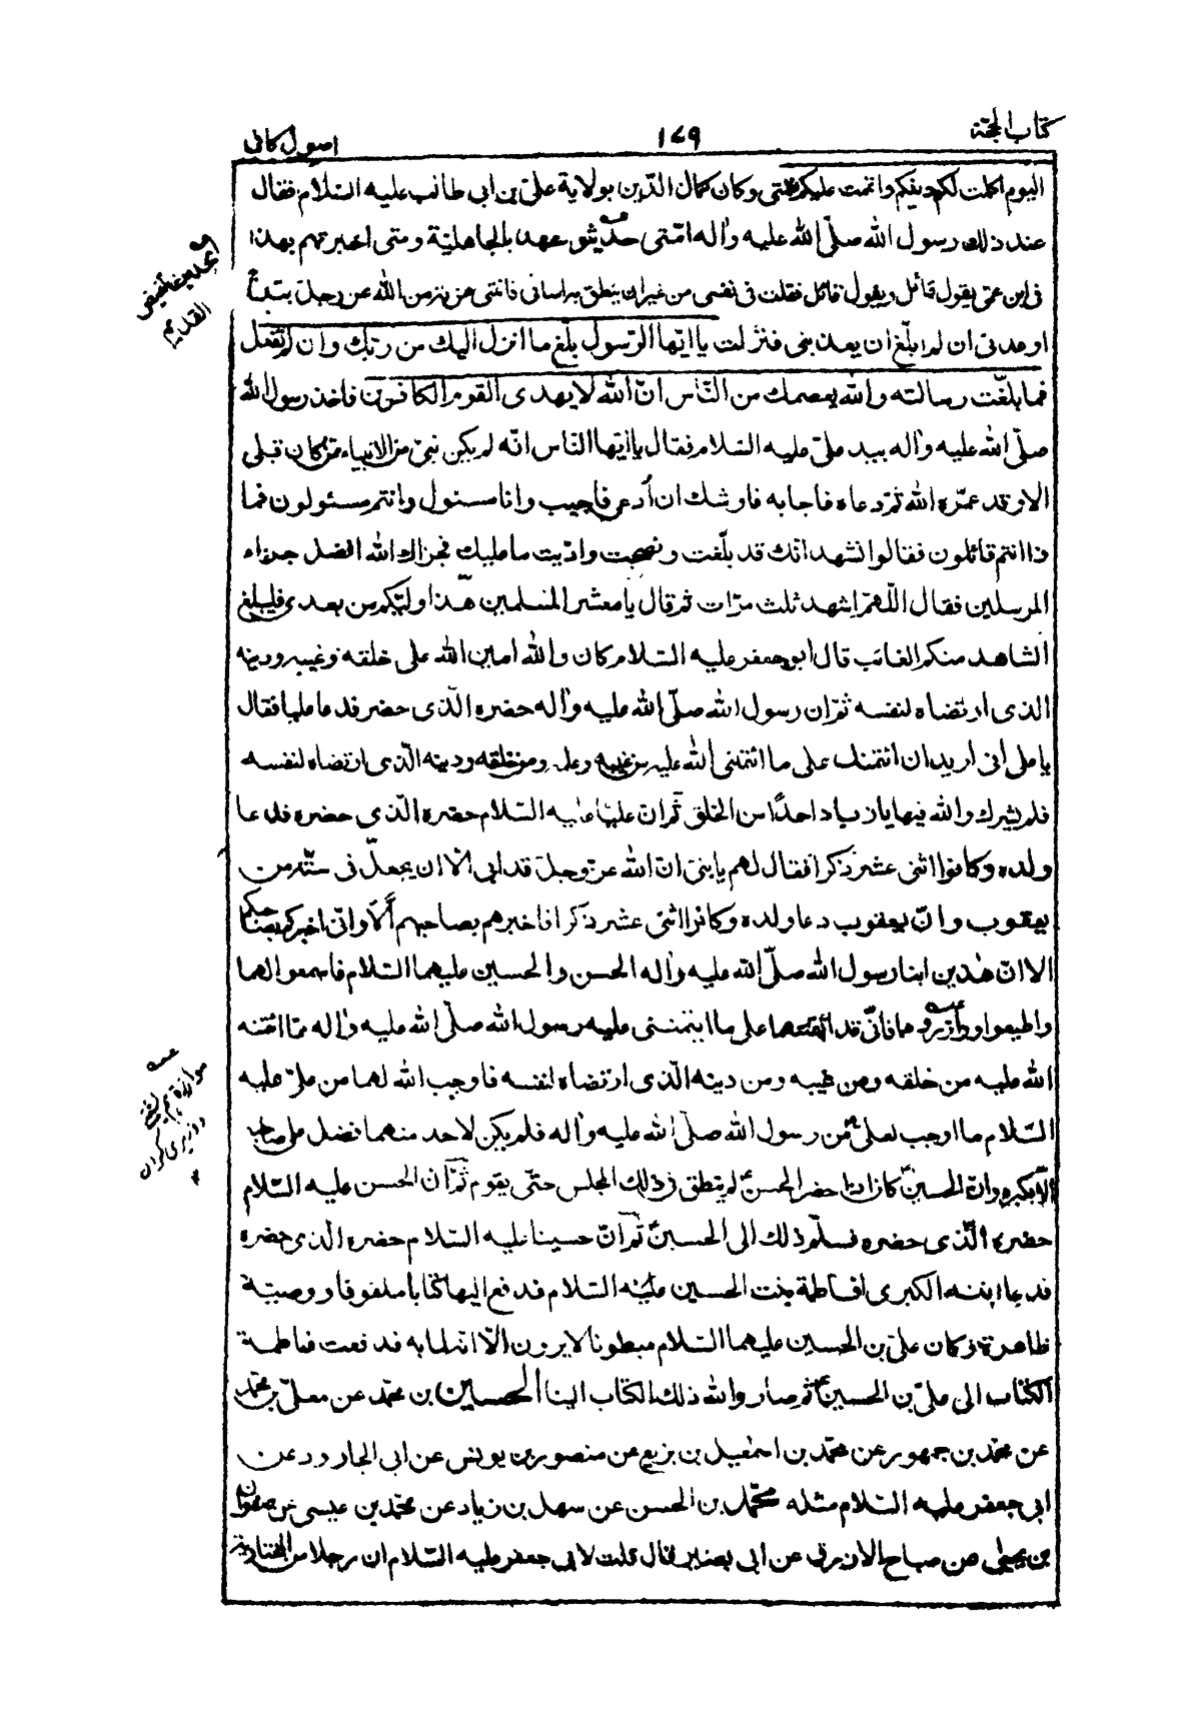 كتاب الحجة
١٧٩
اصول كافى
اليوم اكملت لكم دينكم واتممت عليكم نعمتى وكان كمال الدّين بولاية علىّ بن ابى طالب عليه السّلام فقال
عند ذلك رسول الله صلّى الله عليه واٰله امّتى حديثو عهد بالجاهليّة ومتى اخبرتهم بهذا
فى ابن عمّى يقول قائل ويقول قائل فقلت فى نفسى من غير ان ينطق به لسانى فاتتنى عزيمة من الله عن وجل بتلة
اوعدنى ان لم ابلّغ ان يعذبنى فنزلت يا ايّها الرّسول بلّغ ما انزل اليك من ربّك وان لم تفعل
فما بلّغت رسالته والله يعصمك من النّاس انّ الله لا يهدى القوم الكافرين فاخذ رسول الله
صلّى الله عليه واٰله بيد علىّ عليه السّلام فقال يا ايّها النّاس انّه لم يكن نبىّ من الانبياء ممّن كان قبلى
الا وقد عمّره الله ثمّ دعاه فاجابه فاوشك ان اُدعى فاجيب وانا مسئول وانتم مسئولون فما
ذا انتم قائلون فقالوا نشهد انّك قد بلّغت ونصحت وادّيت ما عليك فجزاك الله افضل جزاء
المرسلين فقال اللّهمّ اشهد ثلث مرّات ثم قال يا معشر المسلمين هذا وليّكم من بعدى فليبلغ
الشاهد منكم الغائب قال ابو جعفر عليه السّلام كان والله امين الله على خلقه وغيبه ودينه
الذى ارتضاه لنفسه ثمّ ان رسول الله صلّى الله عليه واٰله حضره الّذى حضر فدعا عليا فقال
يا على انى اريد ان ائتمنك على ما ائتمننى الله عليه من غيبه وعلمه ومن خلقه ودينه الّذى ارتضاه لنفسه
فلم يشرك والله فيها يا زياد احدًا من الخلق ثمّ ان عليّا عليه السّلام حضره الّذى حضره فدعا
ولده وكانوا اثنى عشر ذكرا فقال لهم يا بنىّ انّ الله عزّ وجلّ قد ابى الّا ان يجعل فىّ سنّة من
يعقوب وانّ يعقوب دعا ولده وكانوا اثنى عشر ذكرا فاخبرهم بصاحبهم ألا وانّى اخبركم بصاحبكم
الا انّ هذين ابنا رسول الله صلّى الله عليه واٰله الحسن والحسين عليهما السّلام فاسمعوا لهما
واطيعوا ووازروهما فانّى قد ائتمنتهما على ما ائتمننى عليه رسول الله صلّى الله عليه واٰله ممّا ائتمنه
الله عليه من خلقه ومن غيبه ومن دينه الّذى ارتضاه لنفسه فاوجب الله لهما من علىّ عليه
السّلام ما اوجب لعلى من رسول الله صلّى الله عليه واٰله فلم يكن لاحد منهما فضل على صاحبه
الّا بكبره وانّ الحسين كان اذا حضر الحسن لم ينطق فى ذلك المجلس حتّى يقوم ثمّ ان الحسن عليه السّلام
حضره الّذى حضره فسلّم ذلك الى الحسين ثمّ انّ حسينا عليه السّلام حضره الّذى حضره
فدعا ابنته الكبرى فاطمة بنت الحسين عليه السّلام فدفع اليها كتابا ملفوفا ووصيّة
ظاهرة وكان علىّ بن الحسين عليهما السّلام مبطونا لا يرون الّا انّه لما به فدفعت فاطمة
الكتاب الى علىّ بن الحسين ثم صار والله ذلك الكتاب الينا الحسين بن محمّد عن معلّى بن محمّد
عن محمّد بن جمهور عن محمّد بن اسمٰعيل بن بزيع عن منصور بن يونس عن ابى الجارود عن
ابى جعفر عليه السّلام مثله محمّد بن الحسن عن سهل بن زياد عن محمّد بن عيسى عن صفوان
بن يحيى عن صباح الازرق عن ابى بصير قال قلت لابى جعفر عليه السّلام ان رجلا من المختاريّة
القديم